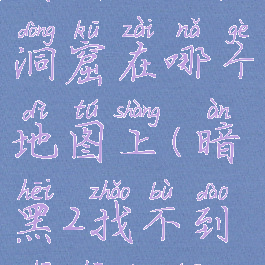 dòng kū zài nǎ gè
洞窟在哪个
dì tú shàng àn
地图上(暗
hēi zhǎo bù dào
黑2找不到